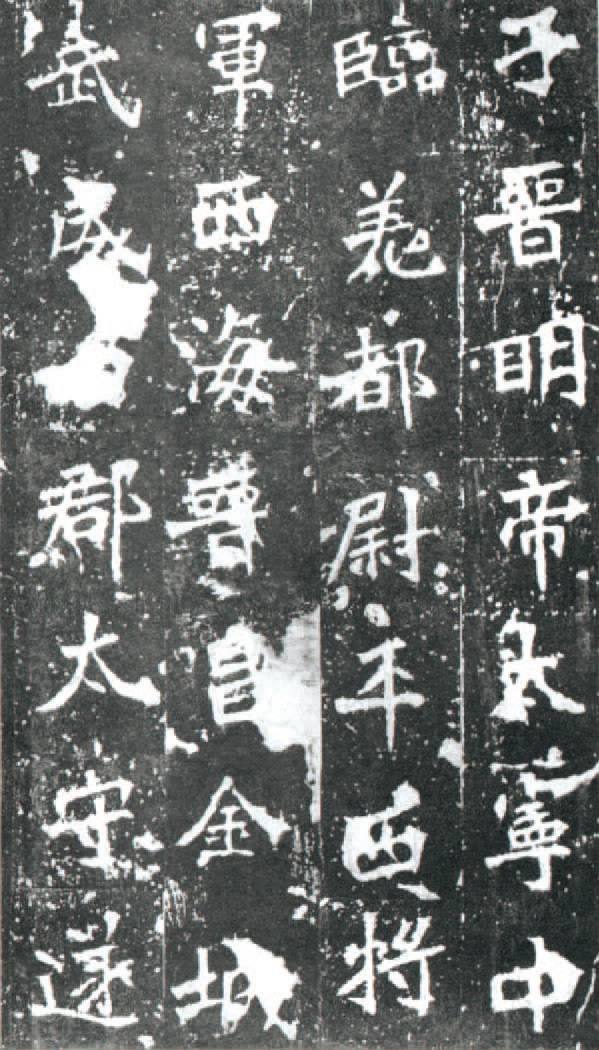 子晉明帝太寧中
臨羌都尉平西將
軍西海晉昌金城
武威郡太守遂